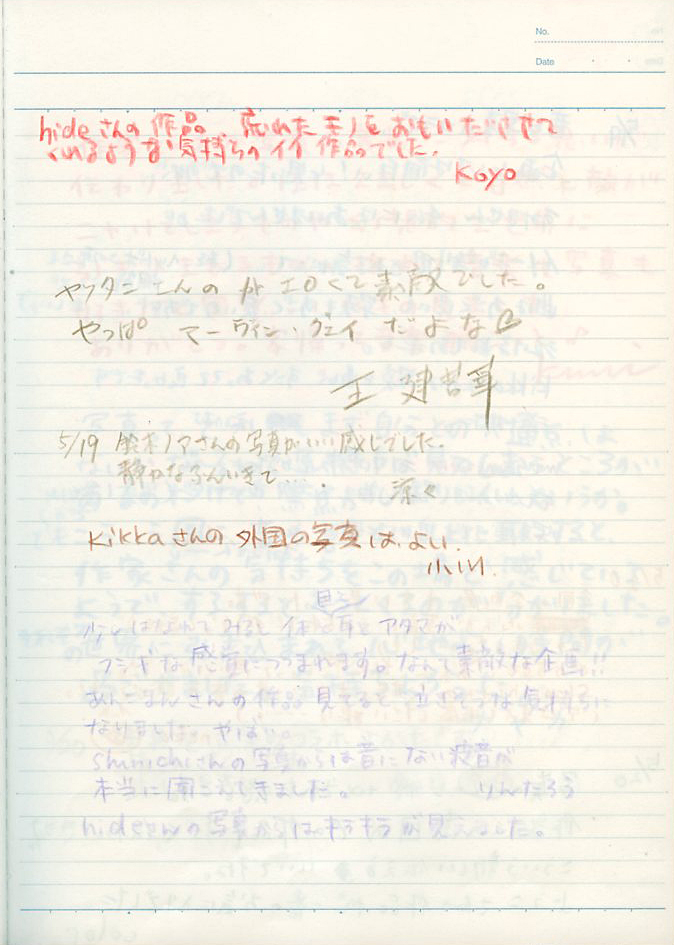 No.
Date
hideさんの作品、忘れたモノをおもいださせて
くれるような気持ちのイイ作品でした。
Koyo
ヤツタニさんの がエロくて素敵でした。
やっぱ マーヴィン・ゲイ だよな♡
5/19 鈴木ノアさんの写真がいい感じでした。
静かなふんいきで....
涼々
kikkaさんの外国の写真は、よい、
小川.
目を
少しはなれてみると 体と耳とアタマが
フシギな感覚につつまれます。なんて素敵な企画!!
あんこまんさんの作品見てると 泣きそうな気持ちに
なりました やばい。
shinichiさんの写真からは昔にない波音が
本当に聞こえてきました。 りんたろう
hideさんの写真からはキラキラが見えました。